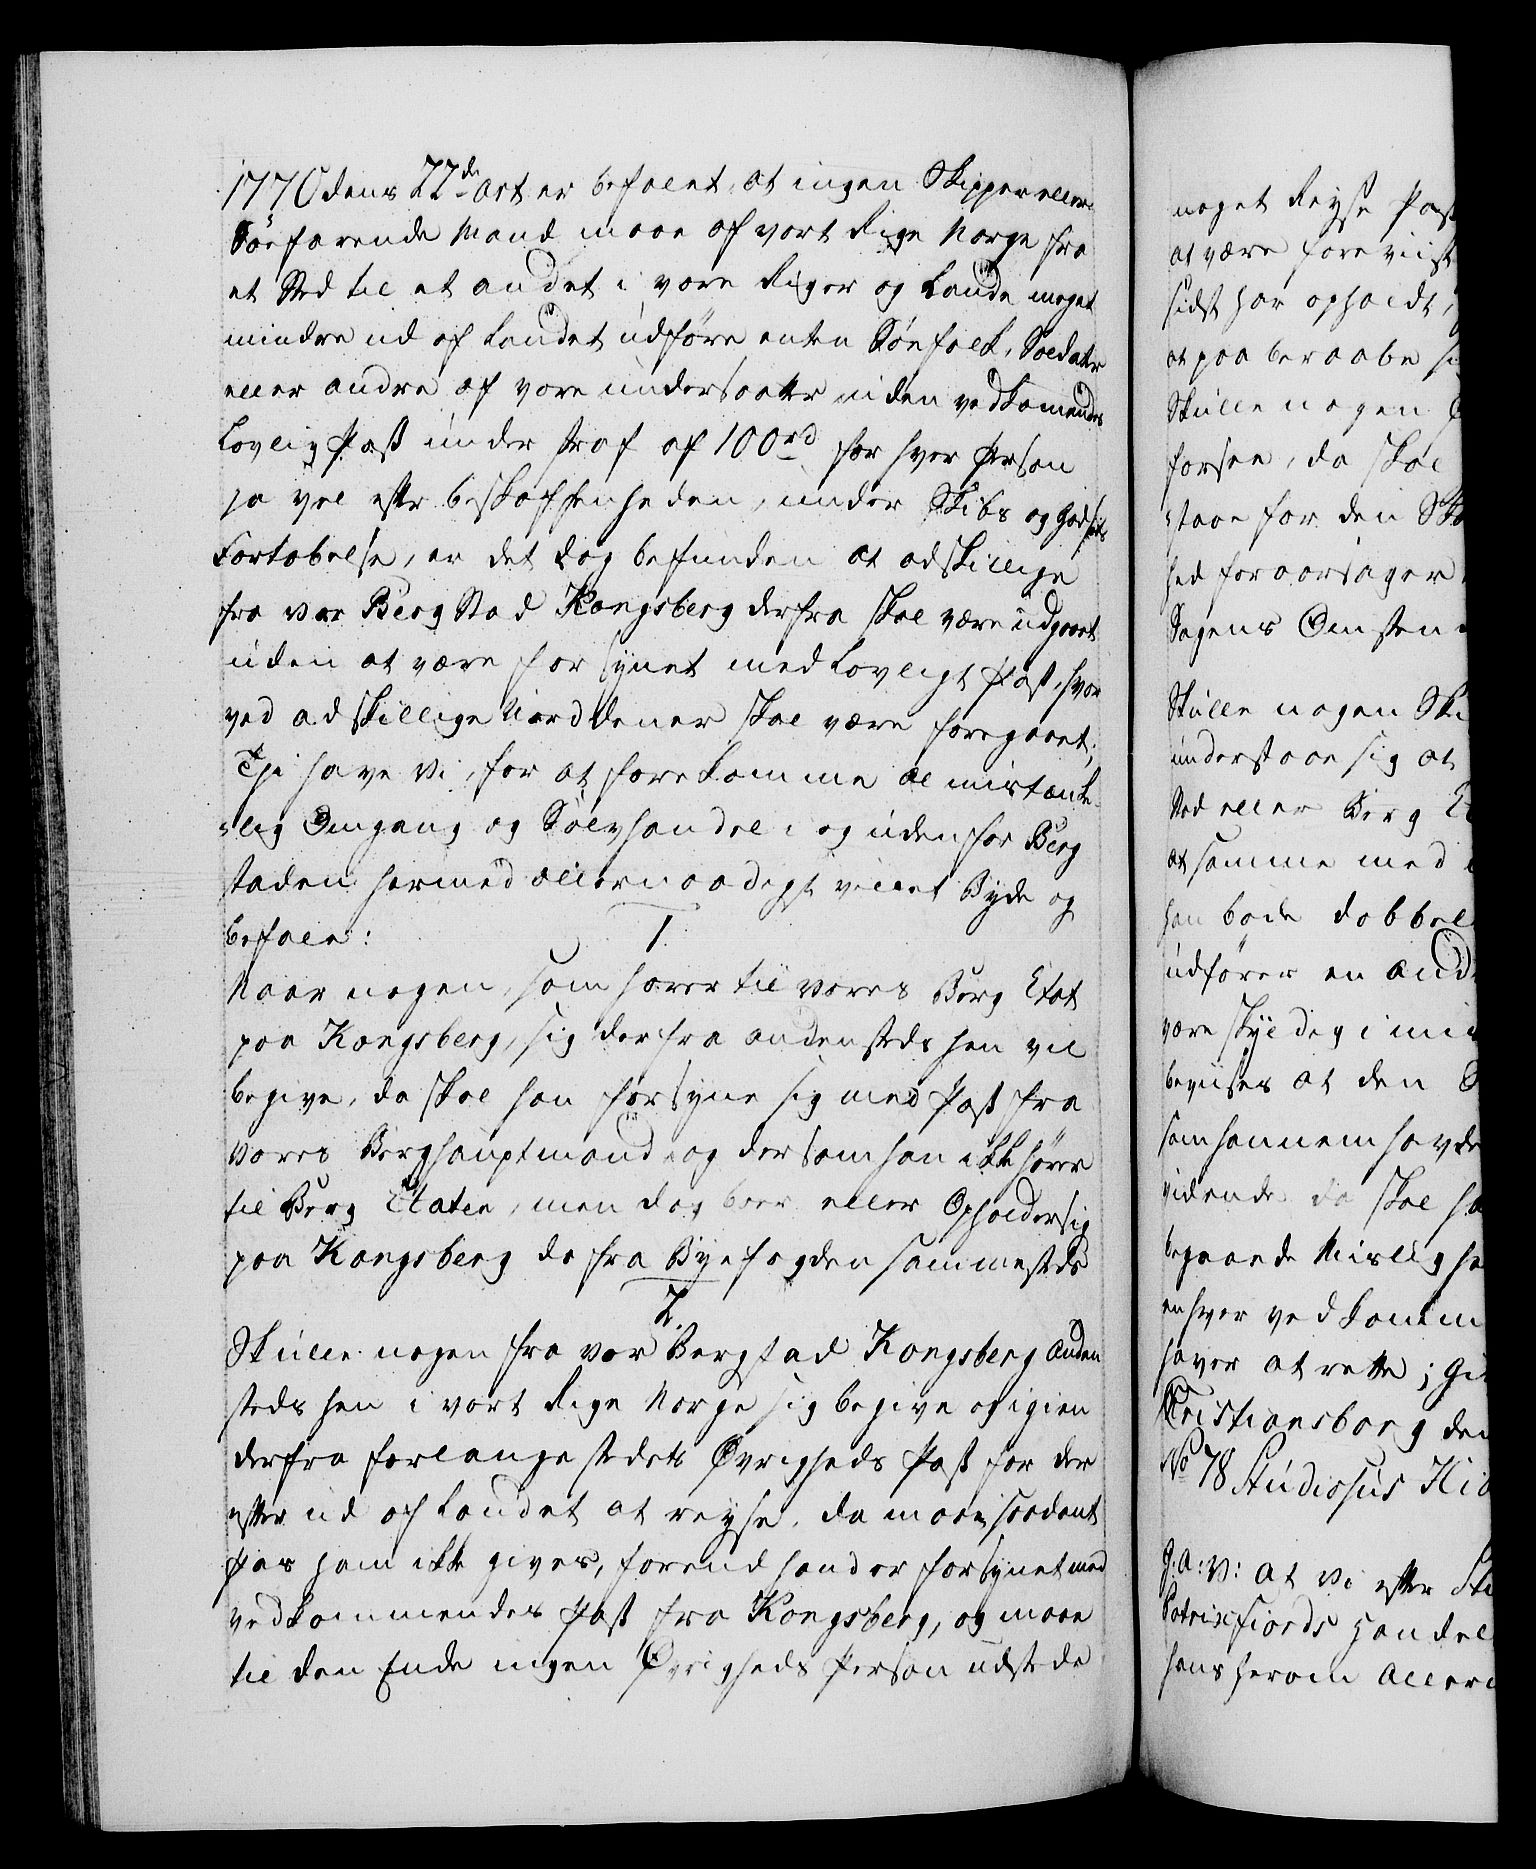 1770 dens 22de Art. er befalet, at ingen Skipper eller
Søefarende Mand maae af vort Rige Norge fra
et Sted til et andet i vore Riger og Lande meget
mindre ud af Landet udføre enten Søefolk, Soldater
eller andre af vore undersaatter uden vedkommendes
Lovlig Pass under straf af 100 rd for hver Person
ja vel efter beskaffenheden, under Skibs og Godsets
Fortabelse, er det dog befunden at adskillige
fra vor Berg Stad Kongsberg derfra skal være udgaaet
uden at være forsynet med Lovligt Pass, hvor
ved adskillige Uorddener skal være foregaaet;
Thi have Vi, for at forekomme al mistænke-
-lig Omgang og Sølvhandel i og uden for Berg
staden hermed allernaadigst villet Byde og
befale:
1.
Naar nogen, som hører til vores Berg Etat
paa Kongsberg, sig derfra andensteds hen vil
begive, da skal han forsyne sig med Pass fra
vores Berghauptmand og dersom han ikke hører
til Berg Etaten, men dog boer eller Opholder sig
paa Kongsberg da fra Byefogden sammesteds
2.
Skulle nogen fra vor Bergstad Kongsberg anden
steds hen i vort Rige Norge sig begive og igien
derfra forlange stedets Øvrigheds Pass for der
efter ud af Landet at reyse, da maae saadant
Pas ham ikke gives, forend hand er forsynet med
vedkommendes Pass fra Kongsberg, og maae
til den Ende ingen Øvrigheds Person udstede
noget Reyse Pass
at være foreviist
sidst har opholdt,
at paa beraabe
Skulle nogen
forsee, da skal
staae for den
hed foraarsager
Sagens Omsten
Skulle nogen
understaae sig at
Sted eller Berg
at samme med
han bøde dobbel
udfører en and
være skyldig i
bevises at den
som hannem havde
vidende da skal
begaaende Mislighe
enhver vedkomm
haver at rette; Gi
Christiansborg den
No 78 Studiosus
G: A: V: At Vi efter
Patrixfiords Handel
hans herom Aller